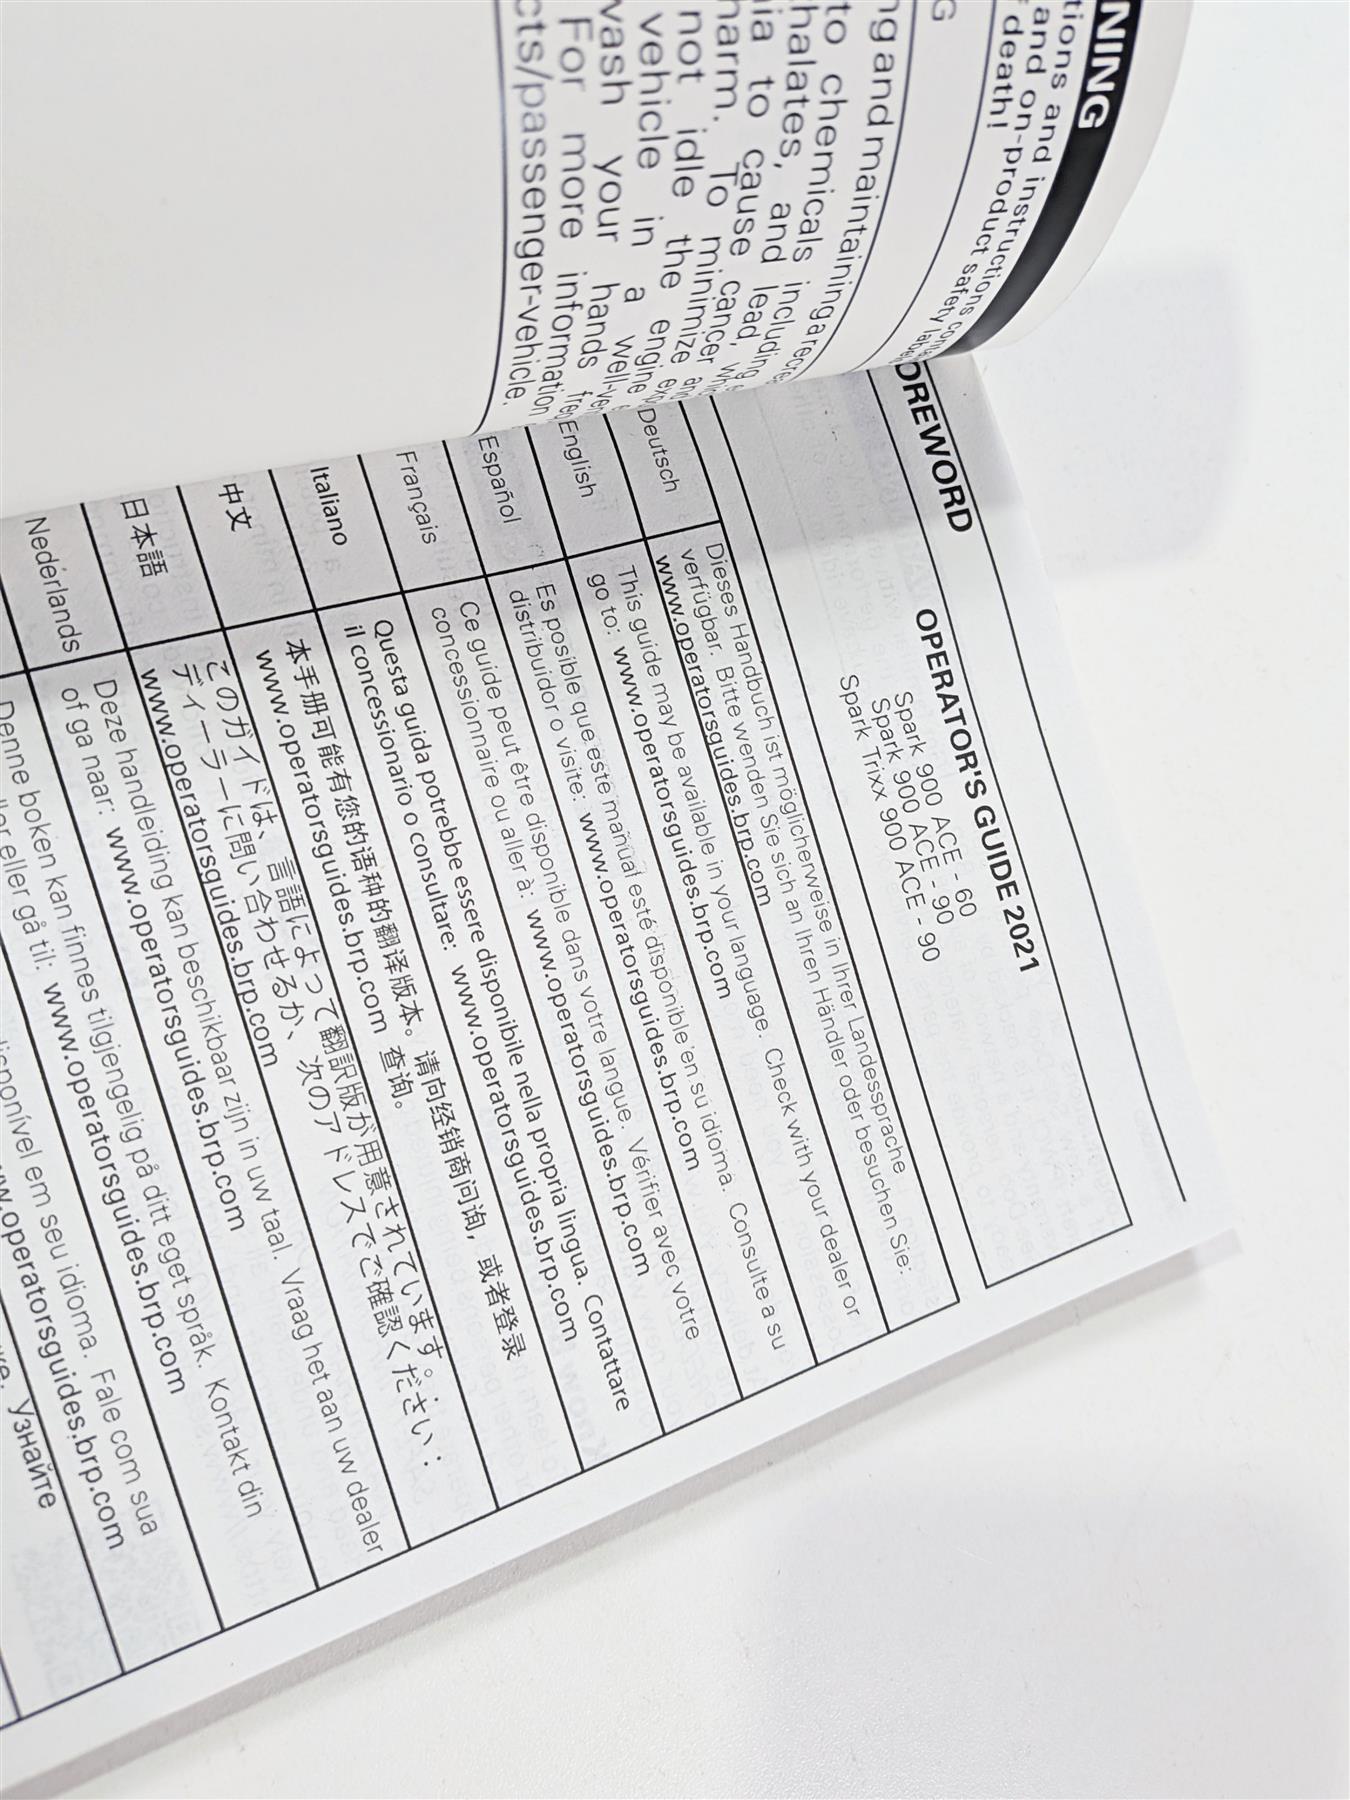 NING
tions and instructions
and on-product safety
death!
G
ng and maintaining a
to chemicals including
halates, and lead,
ia to cause cancer
harm. To minimize
not idle the engine
vehicle in a
wash your hands
For more information
cts/passenger-vehicle.
OREWORD
OPERATOR'S GUIDE 2021
Spark 900 ACE - 60
Spark 900 ACE - 90
Spark Trixx 900 ACE - 90
Deutsch
Dieses Handbuch ist möglicherweise in Ihrer Landessprache
verfügbar. Bitte wenden Sie sich an Ihren Händler oder besuchen Sie:
www.operatorsguides.brp.com
English
This guide may be available in your language. Check with your dealer or
go to: www.operatorsguides.brp.com
Español
Es posible que este manual esté disponible en su idioma. Consulte a su
distribuidor o visite: www.operatorsguides.brp.com
Français
Ce guide peut être disponible dans votre langue. Vérifier avec votre
concessionnaire ou aller à: www.operatorsguides.brp.com
Italiano
Questa guida potrebbe essere disponibile nella propria lingua. Contattare
il concessionario o consultare: www.operatorsguides.brp.com
中文
本手册可能有您的语种的翻译版本。请向经销商问询，或者登录
www.operatorsguides.brp.com 查询。
日本語
このガイドは、言語によって翻訳版が用意されています。:
ディーラーに問い合わせるか、次のアドレスでご確認ください:
www.operatorsguides.brp.com
Nederlands
Deze handleiding kan beschikbaar zijn in uw taal. Vraag het aan uw dealer
of ga naar: www.operatorsguides.brp.com
Denne boken kan finnes tilgjengelig på ditt eget språk. Kontakt din
eller gå til: www.operatorsguides.brp.com
disponível em seu idioma. Fale com sua
www.operatorsguides.brp.com
Узнайте